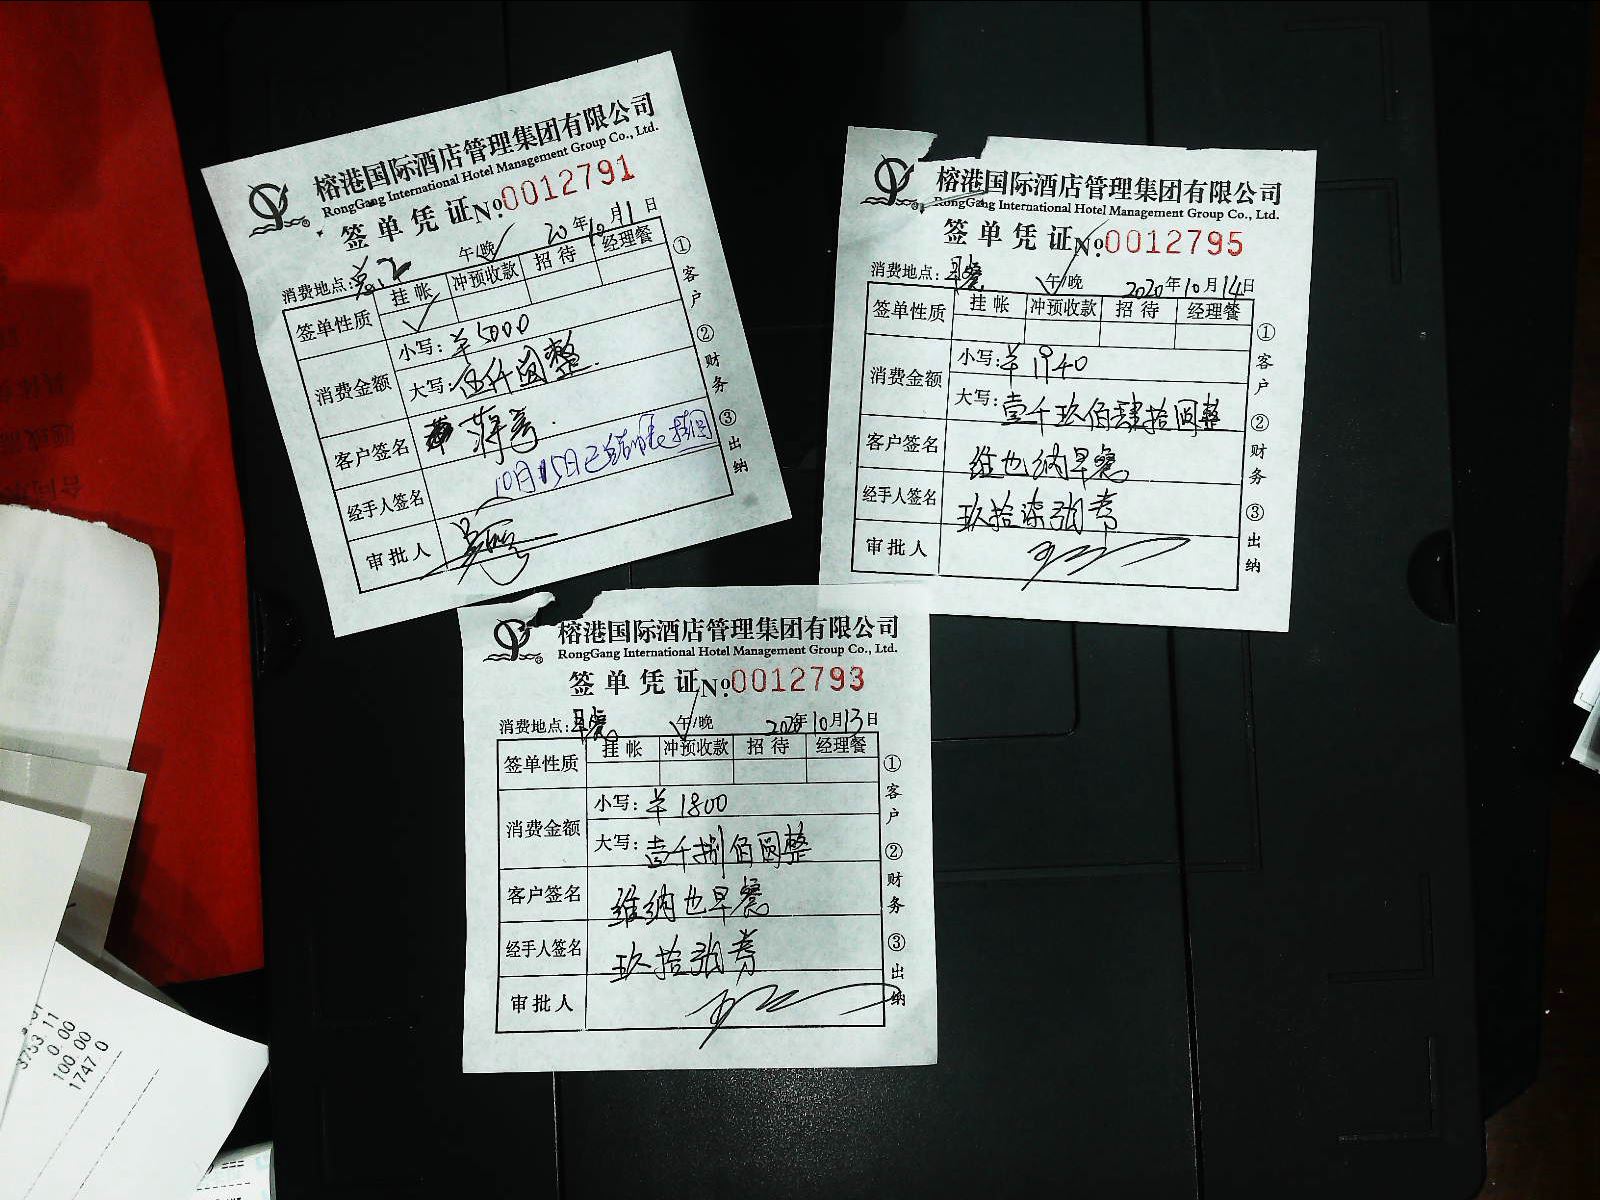 榕港国际酒店管理集团有限公司
RongGang International Hotel Management Group Co., Ltd.
签单凭证№0012791
消费地点: 午/晚 20年10月11日
签单性质 挂帐 冲预收款 招待 经理餐
消费金额 小写:￥5000
大写:伍仟圆整
客户签名
10月15日已
经手人签名
审批人
①客户 ②财务 ③出纳
榕港国际酒店管理集团有限公司
RongGang International Hotel Management Group Co., Ltd.
签单凭证№0012795
消费地点:早餐 午/晚 2020年10月14日
签单性质 挂帐 冲预收款 招待 经理餐
消费金额 小写:￥1940
大写:壹千玖佰肆拾圆整
客户签名 维也纳早餐
经手人签名 玖拾柒张券
审批人
①客户 ②财务 ③出纳
榕港国际酒店管理集团有限公司
RongGang International Hotel Management Group Co., Ltd.
签单凭证№0012793
消费地点:早餐 午/晚 2020年10月13日
签单性质 挂帐 冲预收款 招待 经理餐
消费金额 小写:￥1800
大写:壹千捌佰圆整
客户签名 维纳也早餐
经手人签名 玖拾张券
审批人
①客户 ②财务 ③出纳
3753 11
0.00
100 00
1747 0